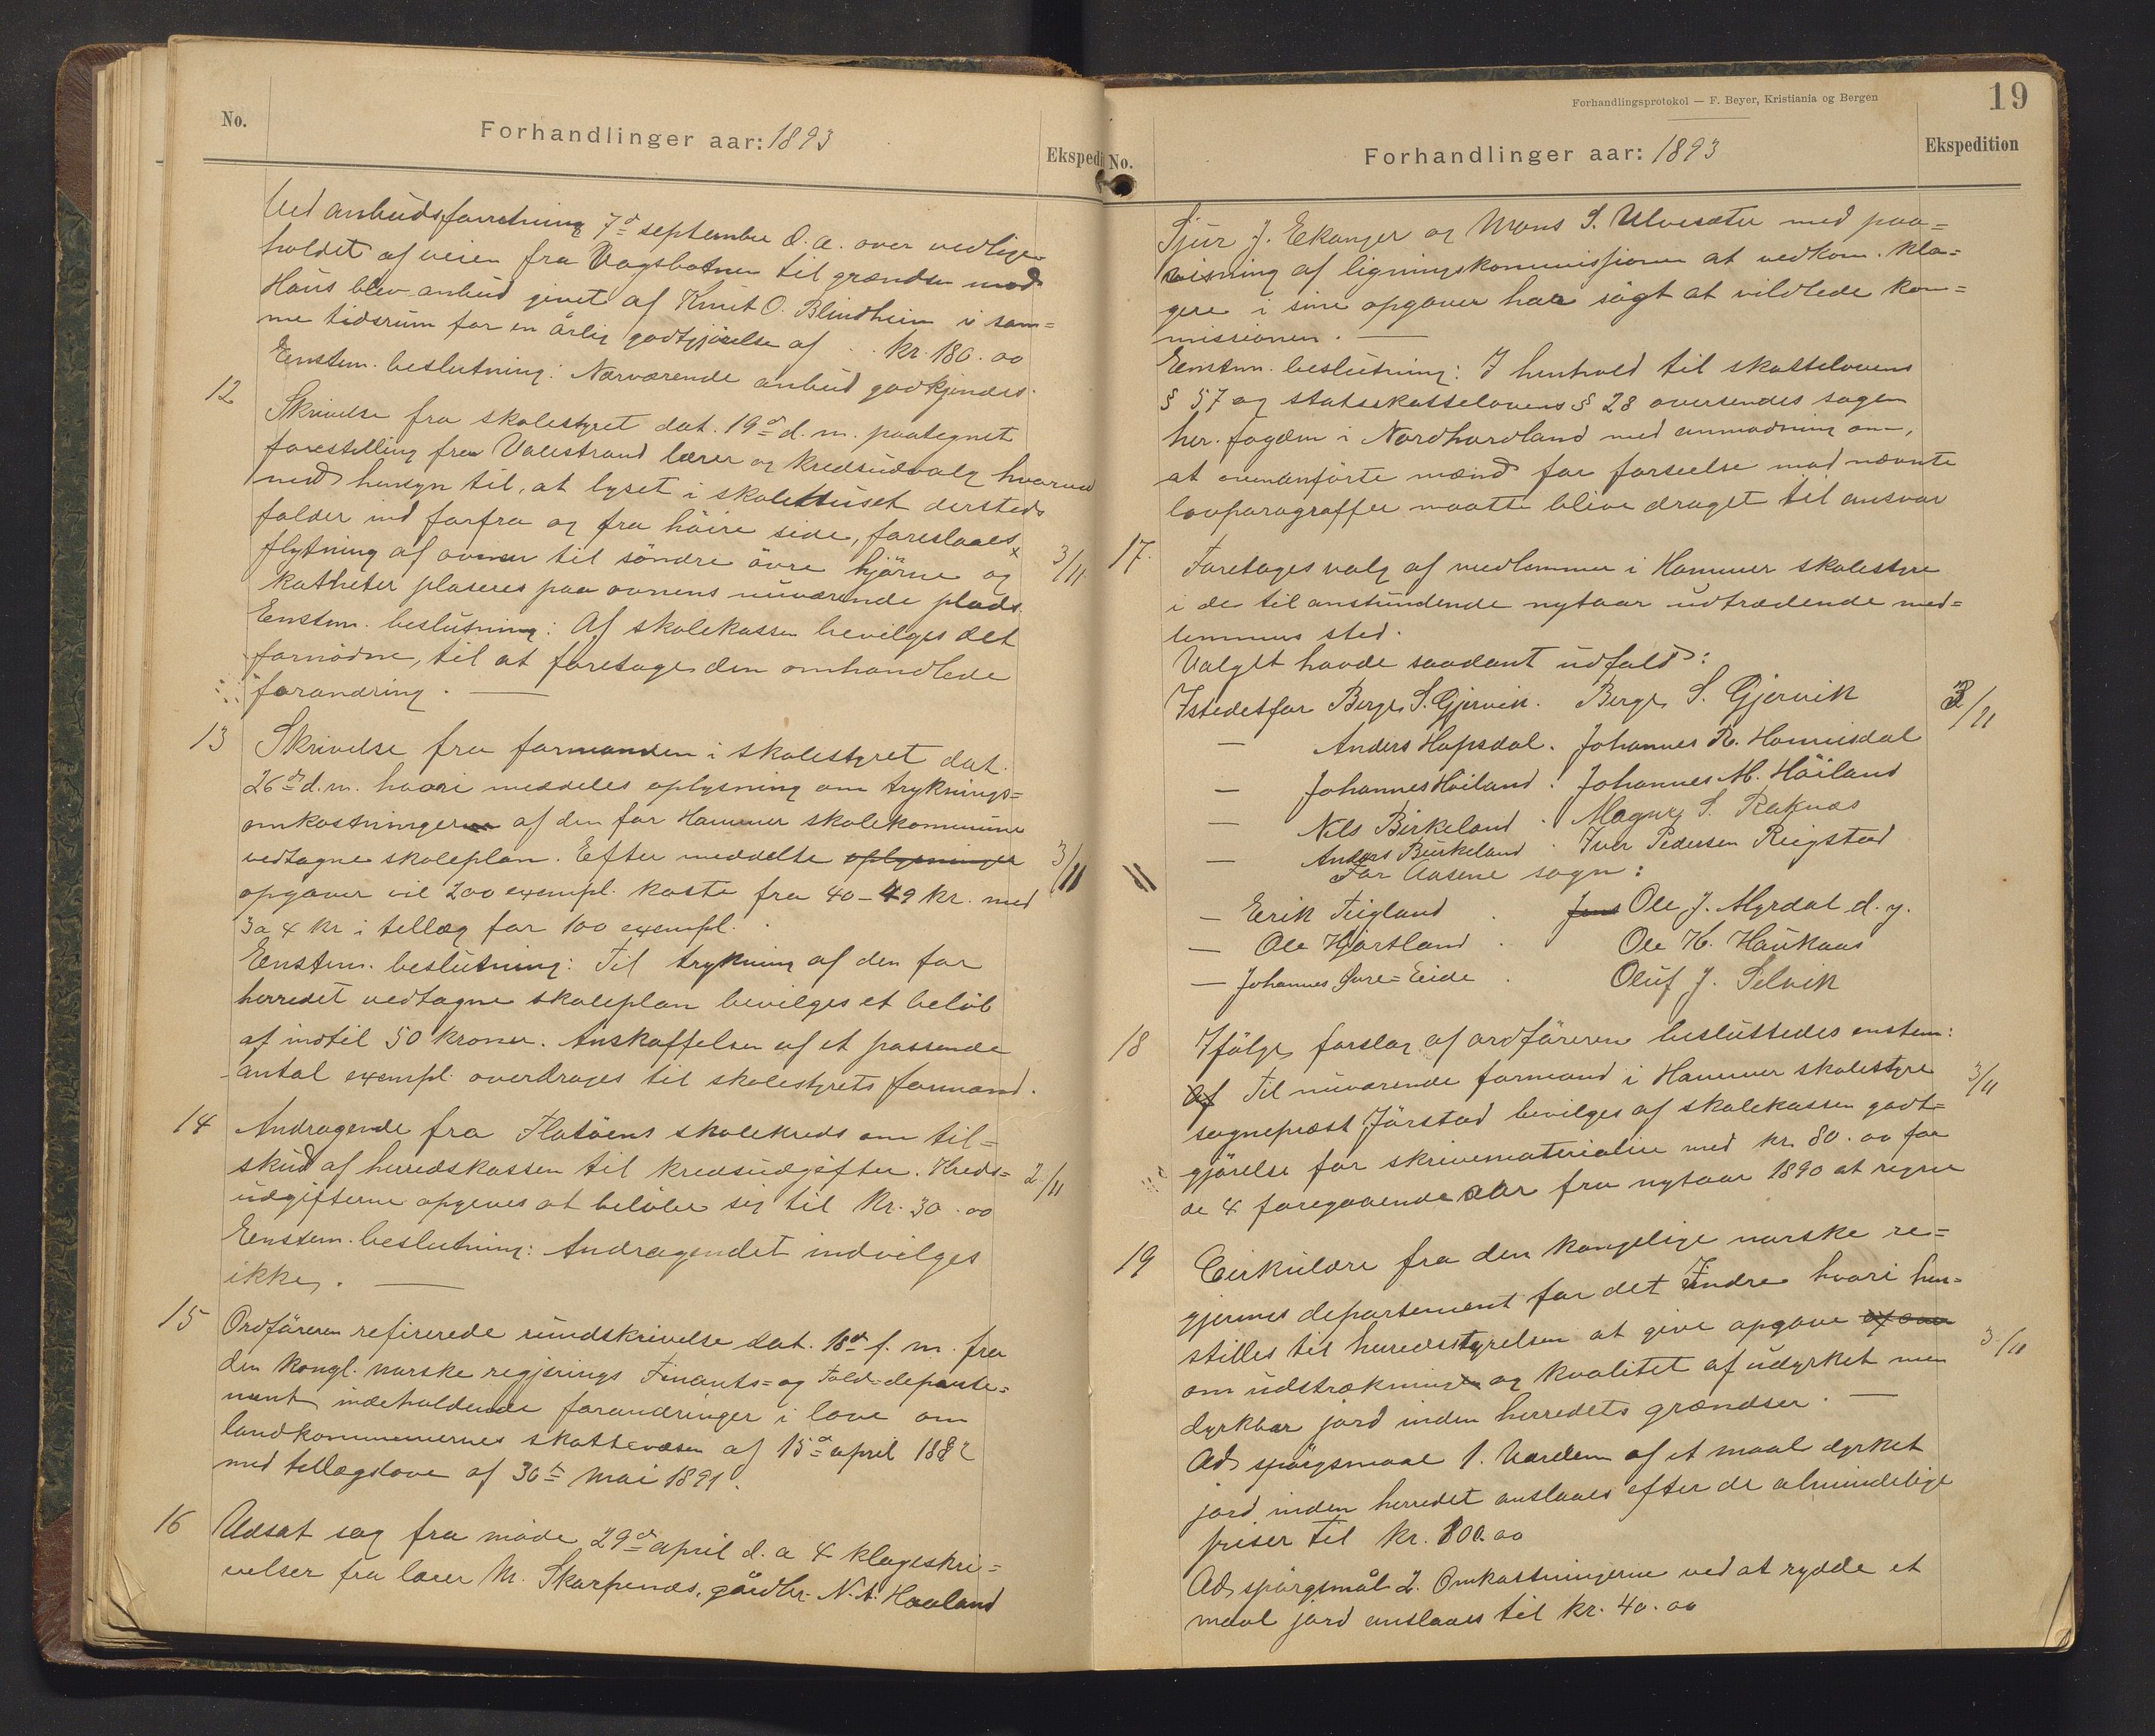 No.
Forhandlinger aar: 1893
Ekspedi
Ved anbudsforretning 7de september d. a. over vedlige-
holdet af veien fra Vagsbotnen til grændsen mod
Haus blev anbud givet af Knut O. Blindheim i sam=
me tidsrum for en årlig godtgjörelse af . . kr. 180.00
Enstem. beslutning: Nærværende anbud godkjendes.
12 Skrivelse fra skolestyret dat. 19de d. m. paategnet
forestilling fra Valestrand lærer og kredsudvalg hvorved
med hensyn til, at lyset i skolehuset dersteds
falder ind forfra og fra höire side, foreslaaes
flytning af ovnen til söndre övre hjörne og
3/11
katheter plaseres paa ovnens nuværende plads.
Enstem. beslutning: Af skolekassen bevilges det
fornödne, til at foretage den omhandlede
forandring. —
13 Skrivelse fra formanden i skolestyret dat.
26de d. m. hvori meddeles oplysning om tryknings=
omkostningerne af den for Hammer skolekommune
vedtagne skoleplan. Efter meddelte oplysninger
3/11
opgaver vil 200 exempl. koste fra 40-49 kr. med
3 a 4 kr i tellæg for 100 exempl.
Enstem. beslutning: Til trykning af den for
herredet vedtagne skoleplan bevilges et belöb
af indtil 50 kroner. Anskaffelsen af et passende
antal exempl. overdrages til skolestyrets formand.
14 Andragende fra Flatöens skolekreds om til=
skud af herredskassen til kredsudgifter. Kreds=
2/11
udgifterne opgives at belöbe sig til Kr. 30.00
Enstem. beslutning: Andragendet indvilges
ikke. —
15 Ordföreren refirerede rundskrivelse dat. 18de f. m. fra
den kongl. norske regjerings Finants= og Told=departe=
ment indeholdende forandringer i love om
landkommunernes skattevæsen af 15de april 1882
med tellægslove af 30te Mai 1891.
16 Udsat sag fra möde 29de april d. a 4 klageskri=
velser fra lærer M. Skarpenæs, gårdbr. N. A. Haaland
Forhandlingsprotokol — F. Beyer, Kristiania og Bergen
19
No.
Forhandlinger aar: 1893
Ekspedition
Sjur J. Ekanger og Mons S. Ulvesæter med paa=
visning af ligningskommissionen at vedkom. kla=
gere i sine opgaver har sögt at vildlede kom=
missionen. —
Enstem. beslutning: I henhold til skattelovens
§ 57 og statsskattelovens § 28 oversendes sagen
her. fogden i Nordhordland med anmodning om,
at ovenanförte mænd for forseelse mod nævnte
lovparagraffer maatte blive draget til ansvar
17. Foretages valg af medlemmer i Hammer skolestyre
i de til anstundende nytaar udtrædende med=
lemmers sted.
Valget havde saadant udfald:
Istedetfor Berge S. Gjervik. Berge S. Gjervik
3/11
— Anders Hopsdal. Johannes R. Homeisdal
— Johannes Höiland. Johannes M. Höiland
— Nils Birkeland . Magne S. Raknæs
— Anders Birkeland . Iver Pedersen Riegstad
For Aasene sogn:
— Erik Teigland . Jens Ole J. Myrdal d. y.
— Ole Hjortland . Ole K. Haukaas
— Johannes Övre=Eide . Oluf J. Selvik
18 Ifölge forslag af ordföreren besluttedes enstem:
Af Til nuværende formand i Hammer skolestyre
3/11
sogneprest Jörstad bevilges af skolekassen godt=
gjörelse for skrivematerialier med kr. 80.00 for
de 4 foregaaende aar fra nytaar 1890 at regne
19 Cirkulære fra den kongelige norske re=
gjerings departement for det Indre hvori hen=
stilles til herredsstyrelsen at give opgave
3/11
om udstrækningen og kvalitet af udyrket men
dyrkbar jord inden herredets grændser. —
Ad spörgsmaal 1. Værdien af et maal dyrket
jord inden herredet anslaaes efter de almindelige
priser til kr. 100.00
Ad spörgsmål 2. Omkostningerne ved at rydde et
maal jord anslaaes til kr. 40.00